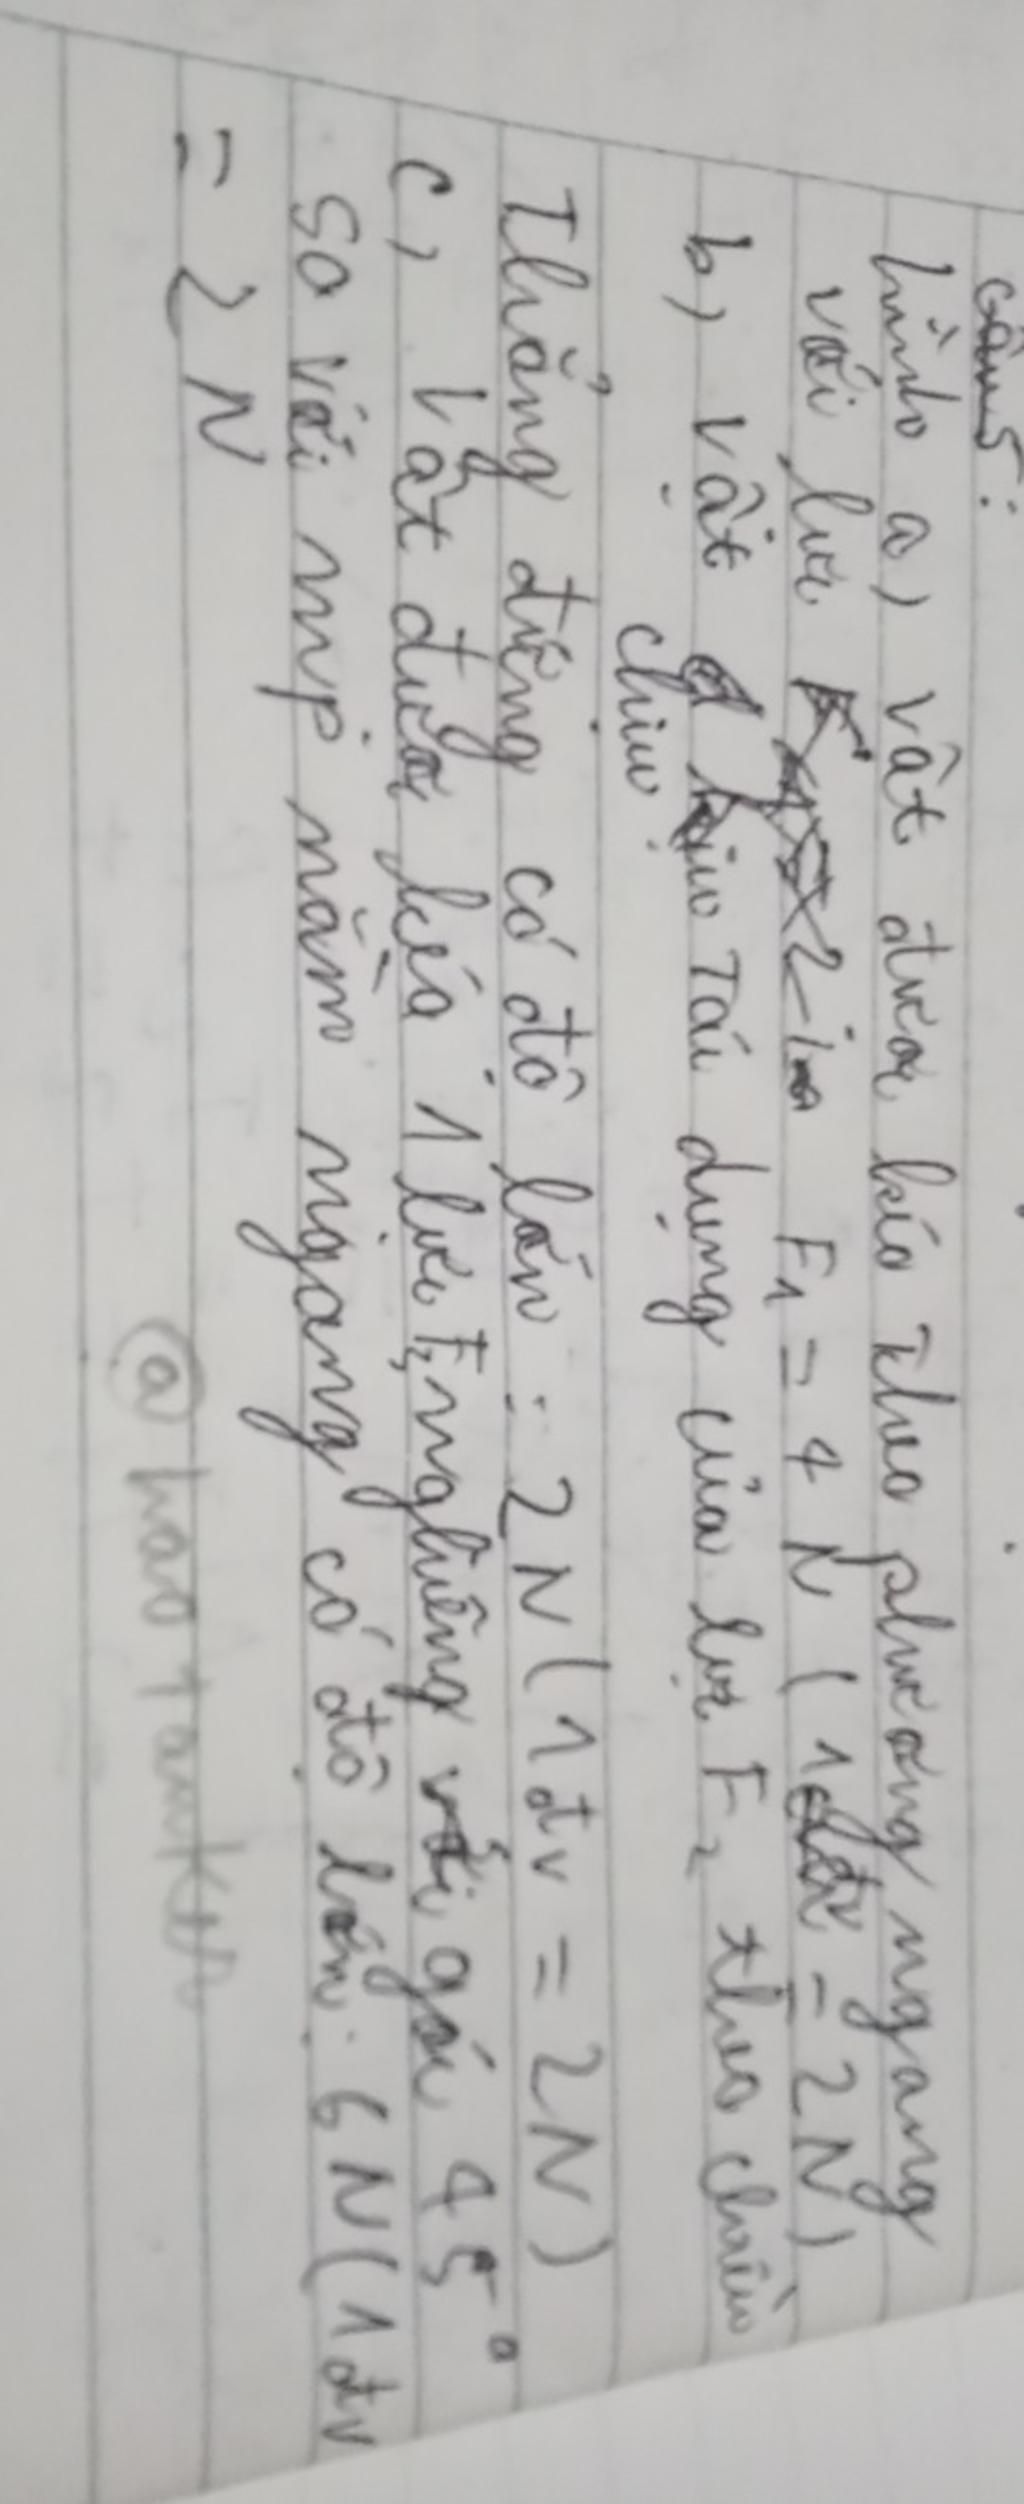 câu 5:
hình a) vật được kéo theo phương ngang
với lực F1 = 4 N (1đv = 2N)
b) vật chịu tác dụng của lực F2 theo chiều
chịu
Thẳng đứng có độ lớn: 2N (1đv = 2N)
c) Vật được kéo 1 lực F3 nghiêng với góc 45°
so với mp nằm ngang có độ lớn: 6N (1đv
= 2 N